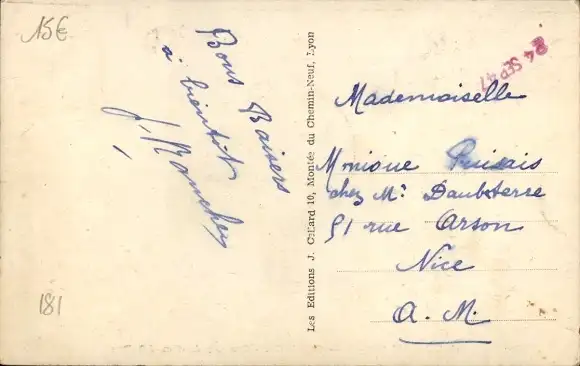 15€
Bons Baisers
à bientôt
J.
181
Les Editions J. Cellard 10, Montée du Chemin-Neuf, Lyon
24 SEP 47
Mademoiselle
Monique Puisais
chez Mr Daubterre
51 rue Arson
Nice
A. M.